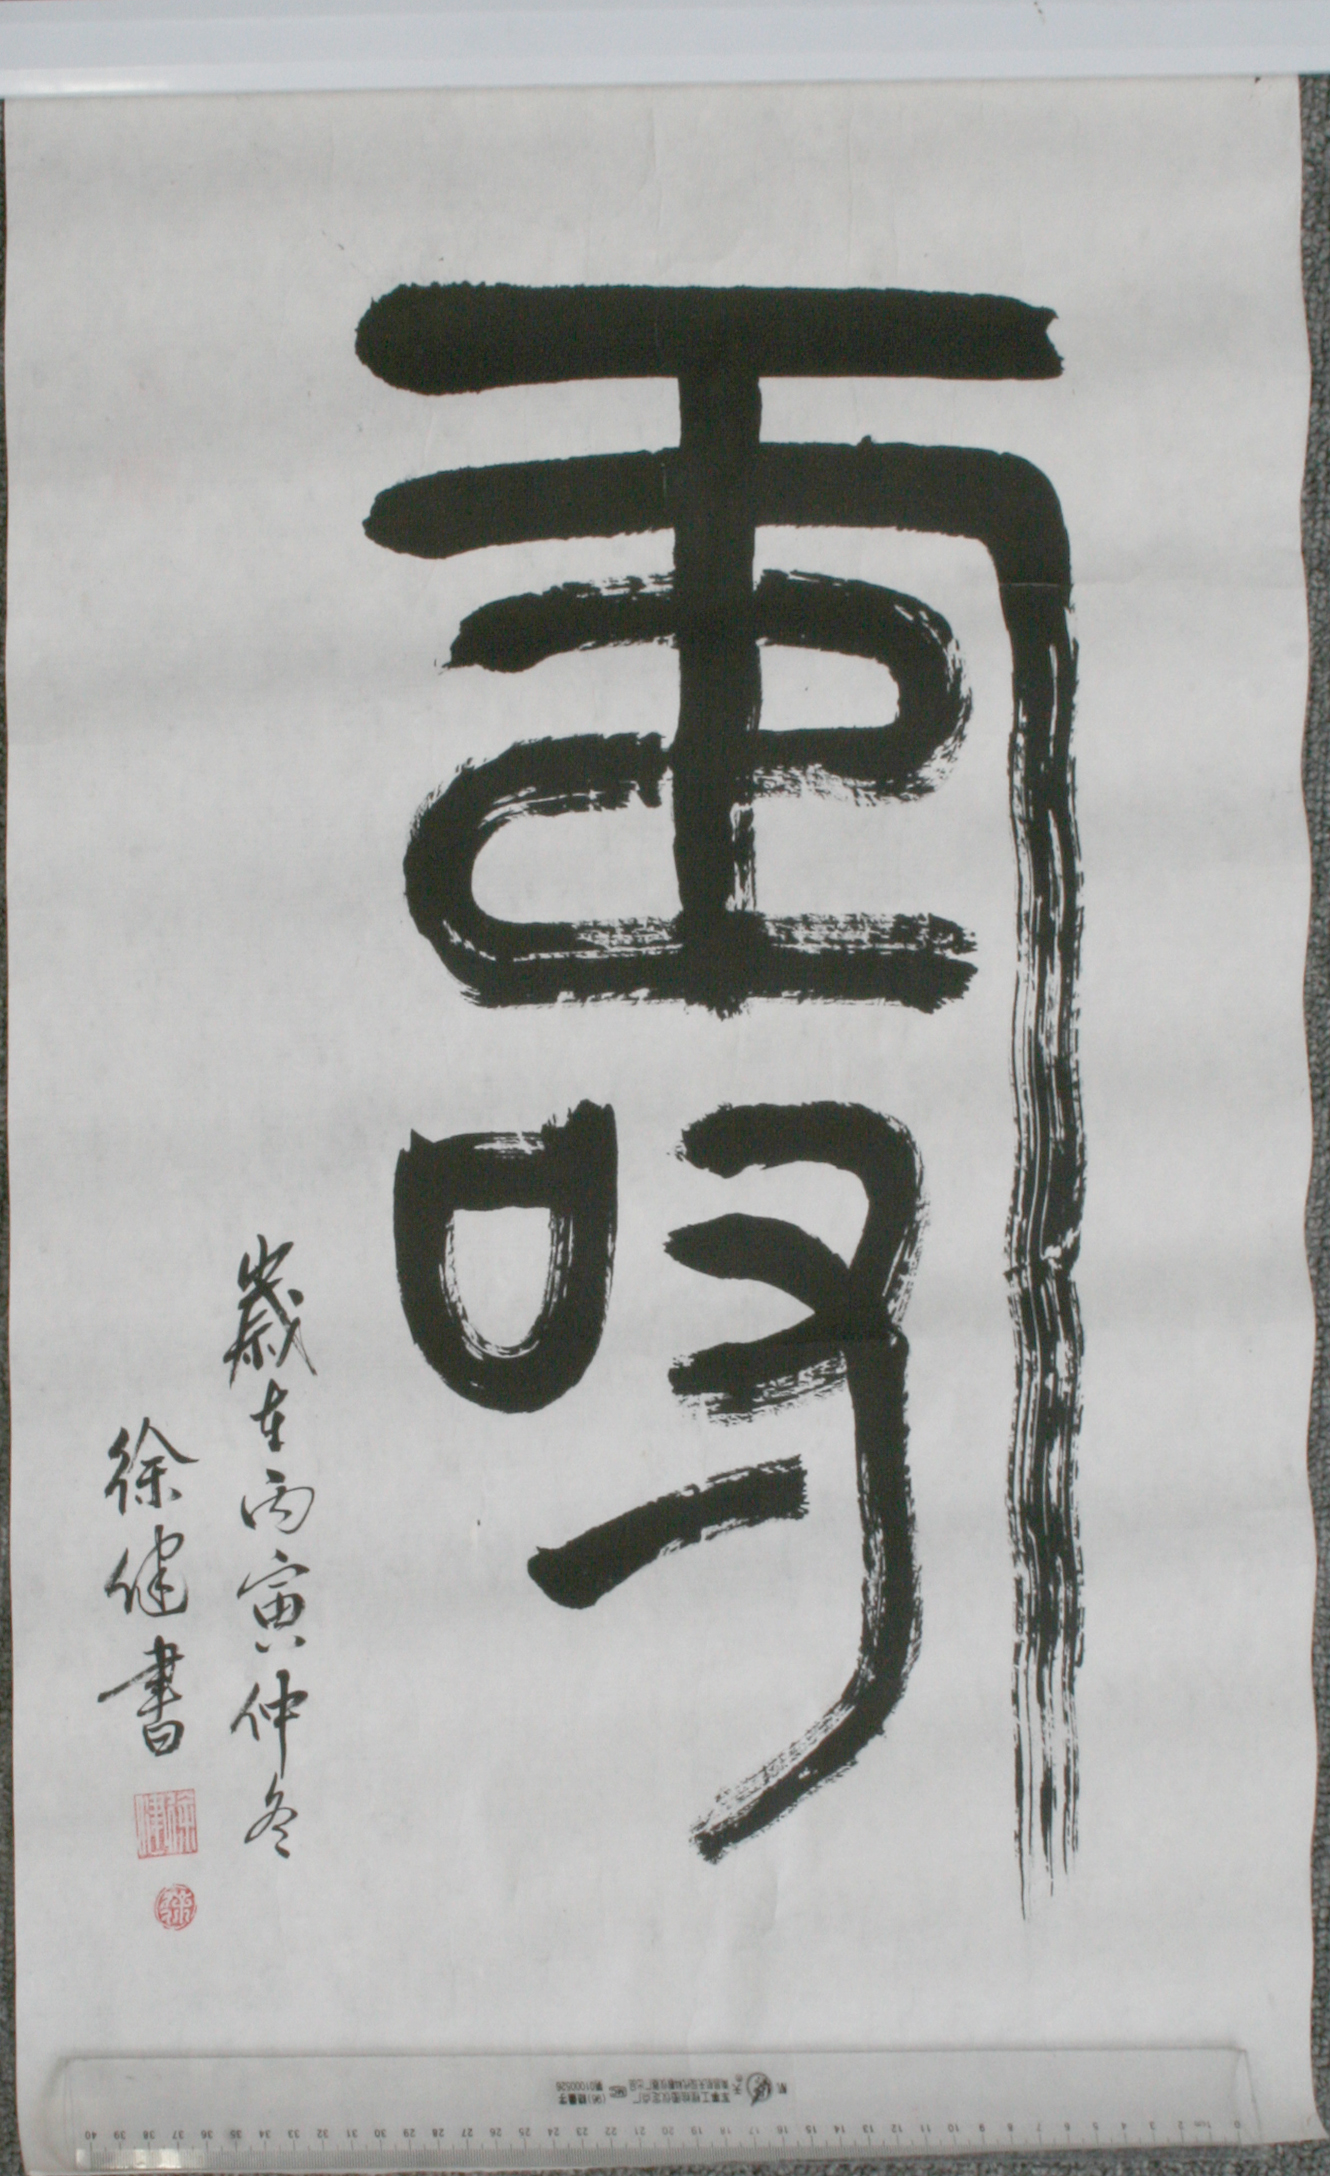 壽
歲在丙寅仲冬
徐健書
徐健
0 1cm 2 3 4 5 6 7 8 9 10 11 12 13 14 15 16 17 18 19 20 21 22 23 24 25 26 27 28 29 30 31 32 33 34 35 36 37 38 39 40